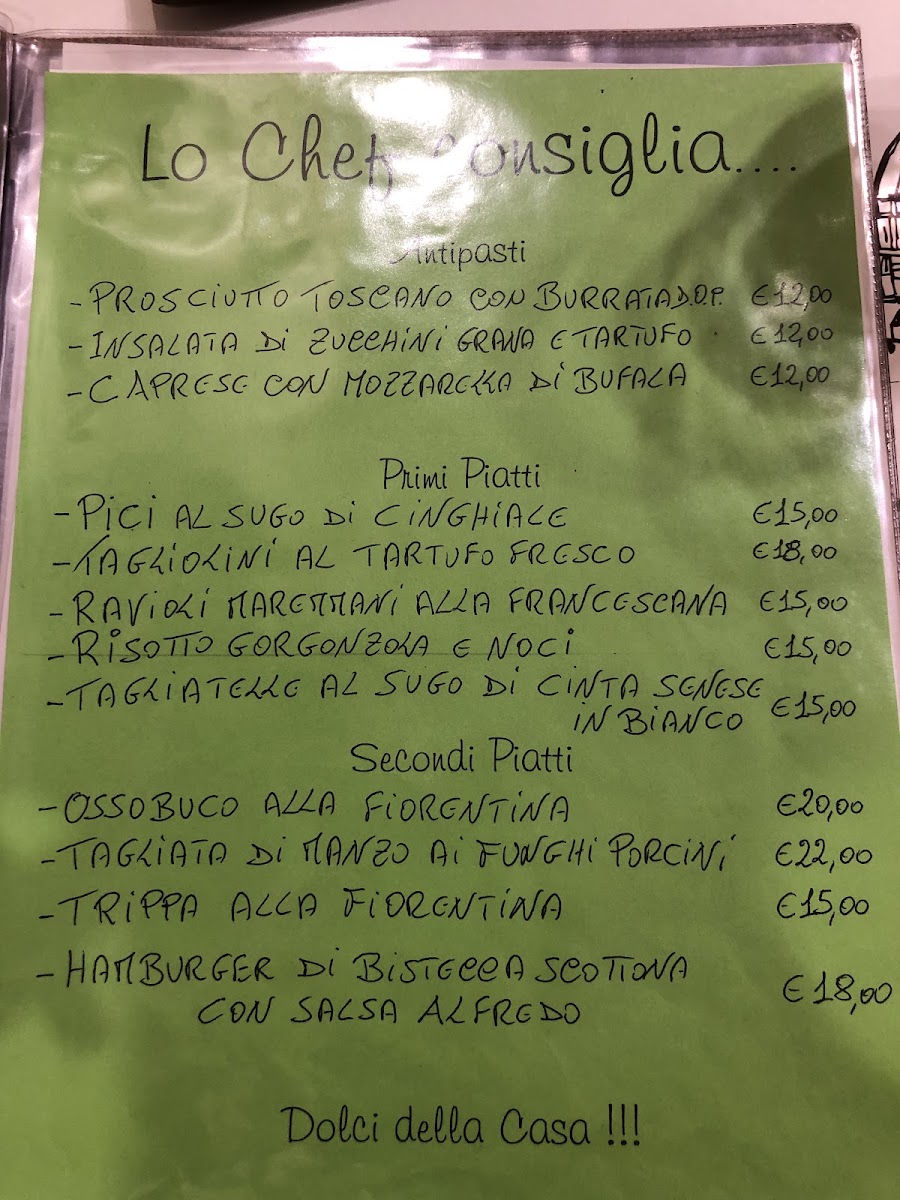 Lo Chef Consiglia....
Antipasti
- PROSCIUTTO TOSCANO CON BURRATA D.O.P. €12,00
- INSALATA Di ZUCCHiNi GRANA E TARTUFO €12,00
- CAPRESE CON MOZZARELLA Di BUFALA €12,00
Primi Piatti
- PiCi AL SUGO Di CiNGHiALE €15,00
- TAGLIOLiNi AL TARTUFO FRESCO €18,00
- RAViOLi MAREMMANi ALLA FRANCESCANA €15,00
- RiSOTTO GORGONZOLA E NOCi €15,00
- TAGLIATELLE AL SUGO Di CiNTA SENESE
iN BiANCO €15,00
Secondi Piatti
- OSSOBUCO ALLA FiORENTiNA €20,00
- TAGLIATA Di MANZO Ai FUNGHi PORCiNi €22,00
- TRiPPA ALLA FiORENTiNA €15,00
- HAMBURGER Di BiSTECCA SCOTTONA
CON SALSA ALFREDO €18,00
Dolci della Casa !!!